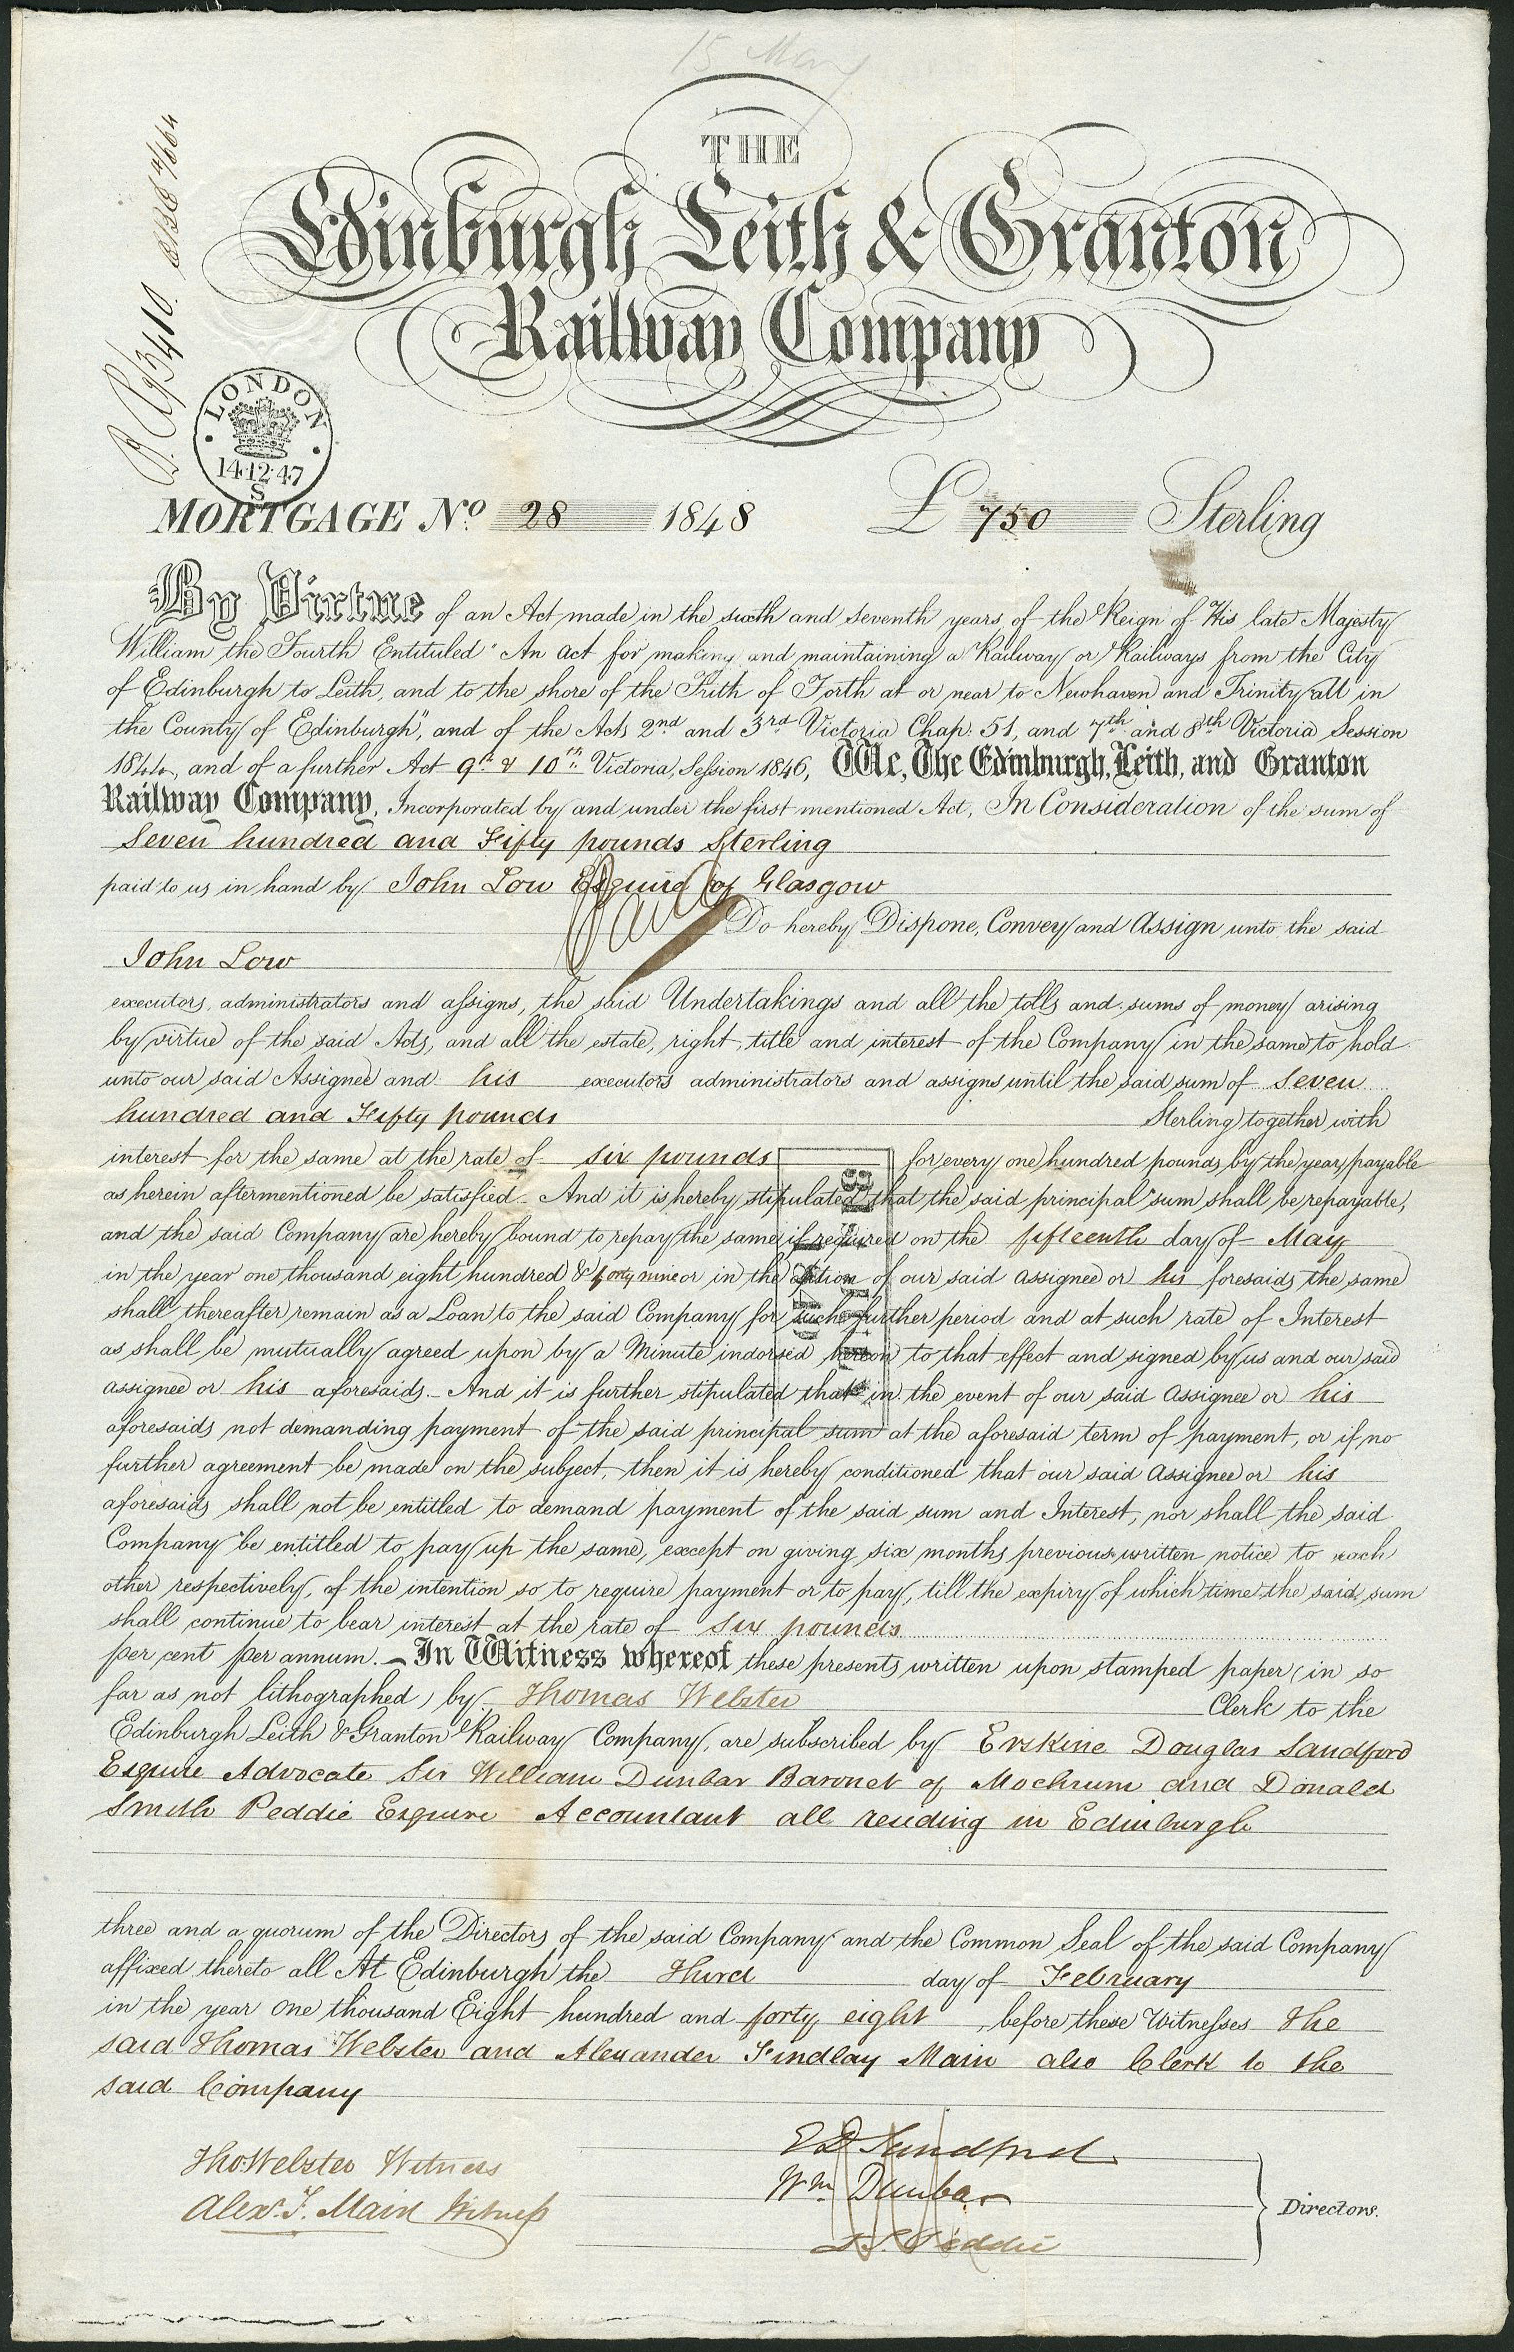 15 May
THE
Edinburgh Leith & Granton
Railway Company
LONDON
14·12·47
S
MORTGAGE No. 28 1848 £ 750 Sterling
By Virtue of an Act made in the sixth and seventh years of the Reign of His late Majesty
William the Fourth Entituled "An act for making and maintaining a Railway or Railways from the City
of Edinburgh to Leith, and to the shore of the Frith of Forth at or near to Newhaven and Trinity all in
the County of Edinburgh", and of the Acts 2nd and 3rd Victoria Chap. 51, and 7th and 8th Victoria Session
1844, and of a further Act 9th & 10th Victoria, Session 1846, We, The Edinburgh, Leith, and Granton
Railway Company, Incorporated by and under the first mentioned Act, In Consideration of the sum of
Seven hundred and Fifty pounds Sterling
paid to us in hand by John Low Esquire of Glasgow
Do hereby Dispone, Convey and Assign unto the said
John Low
executors, administrators and assigns, the said Undertakings and all the tolls and sums of money arising
by virtue of the said Acts, and all the estate, right, title and interest of the Company in the same to hold
unto our said Assignee and his executors administrators and assigns until the said sum of Seven
hundred and Fifty pounds Sterling together with
interest for the same at the rate of six pounds for every one hundred pounds by the year, payable
as herein aftermentioned be satisfied. And it is hereby stipulated that the said principal sum shall be repayable,
and the said Company are hereby bound to repay the same if required on the fifteenth day of May
in the year one thousand eight hundred & forty nine or in the option of our said assignee or his foresaids the same
shall thereafter remain as a Loan to the said Company for such further period and at such rate of Interest
as shall be mutually agreed upon by a Minute indorsed hereon to that effect and signed by us and our said
assignee or his aforesaids. And it is further stipulated that in the event of our said Assignee or his
aforesaids not demanding payment of the said principal sum at the aforesaid term of payment, or if no
further agreement be made on the subject, then it is hereby conditioned that our said Assignee or his
aforesaids shall not be entitled to demand payment of the said sum and Interest, nor shall the said
Company be entitled to pay up the same, except on giving six months previous written notice to each
other respectively, of the intention so to require payment or to pay, till the expiry of which time the said sum
shall continue to bear interest at the rate of six pounds
per cent per annum. — In Witness whereof these presents written upon stamped paper (in so
far as not lithographed) by Thomas Webster Clerk to the
Edinburgh Leith & Granton Railway Company, are subscribed by Erskine Douglas Sandford
Esquire Advocate Sir William Dunbar Baronet of Mochrum and Donald
Smith Peddie Esquire Accountant all residing in Edinburgh
three and a quorum of the Directors of the said Company and the Common Seal of the said Company
affixed thereto all At Edinburgh the Third day of February
in the year One thousand Eight hundred and forty eight, before these Witnesses The
said Thomas Webster and Alexander Findlay Main also Clerk to the
said Company
Tho. Webster Witness
Alexr. F. Main Witness
E D Sandford
Wm Dunbar
D. S. Peddie
Directors.